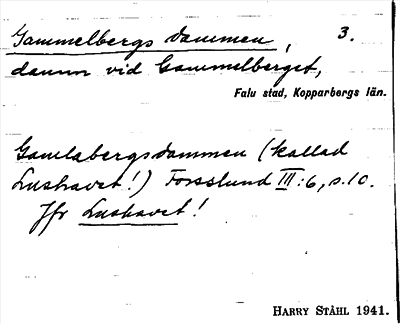 Gammelbergsdammen, 3.
damm vid Gammelberget,
Falu stad, Kopparbergs län.
Gamlabergsdammen (kallad
Lushavet!) Forsslund III:6, s.10.
Jfr Lushavet!
HARRY STÅHL 1941.